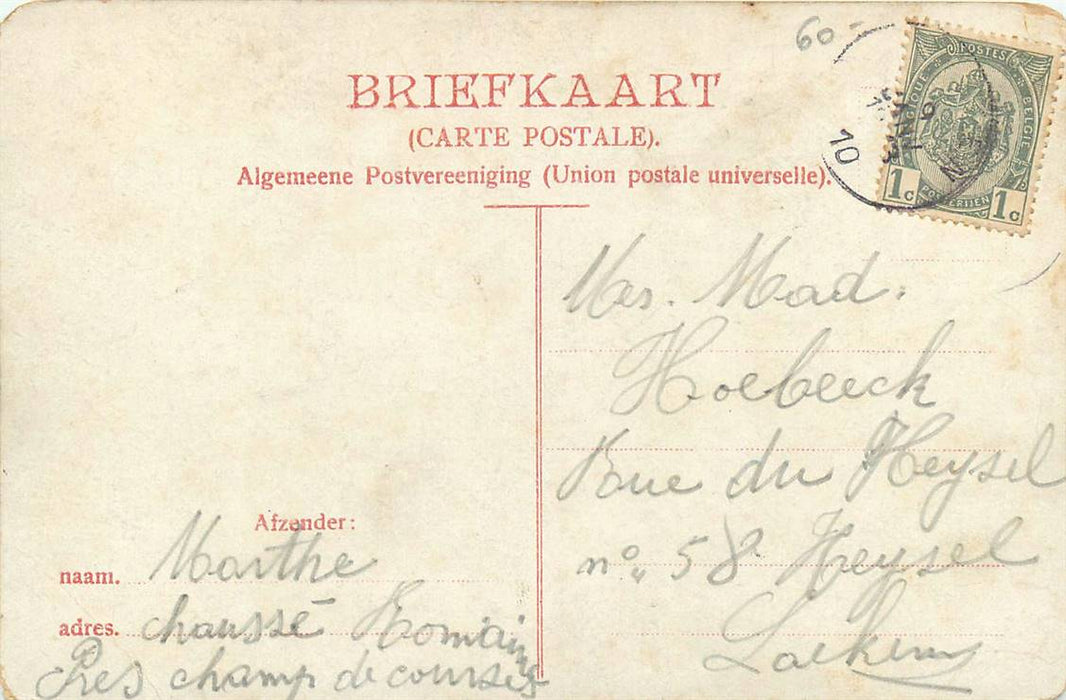 60-
BRIEFKAART
(CARTE POSTALE).
Algemeene Postvereeniging (Union postale universelle).
POSTES
BELGIQUE BELGIE
1c POSTERIJEN 1c
10
Mes. Mad.
Hoebeeck
Rue du Heysel
n° 58 Heysel
Laeken
Afzender:
naam. Marthe
adres. chaussé Romaine
Près champ de courses